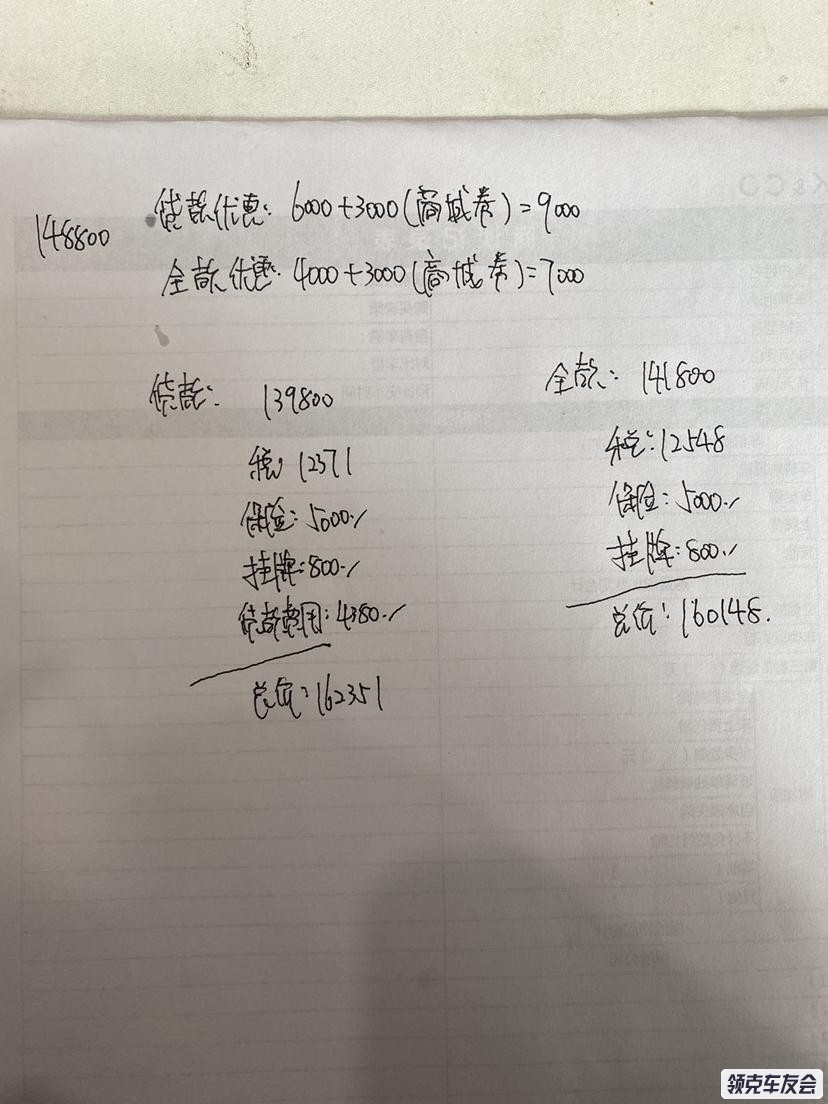 148800
贷款优惠: 6000+3000(商城券)=9000
全款优惠: 4000+3000(商城券)=7000
贷款: 139800
税: 12371
保险: 5000
挂牌: 800
贷款费用: 4380
总价: 162351
全款: 141800
税: 12548
保险: 5000
挂牌: 800
总价: 160148.
领克车友会